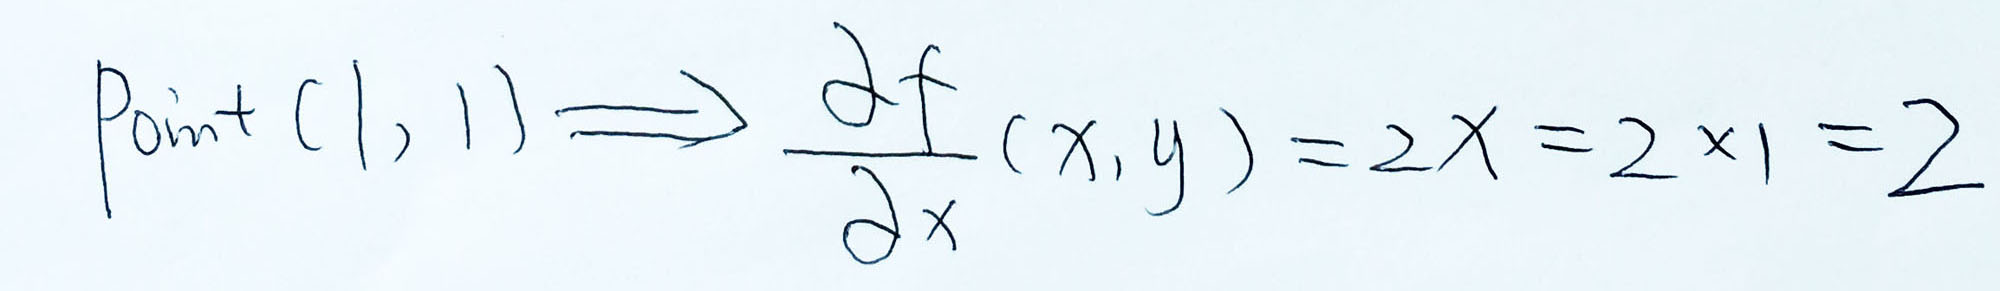 Point (1, 1) ⟹ ∂f/∂x (x, y) = 2x = 2 × 1 = 2